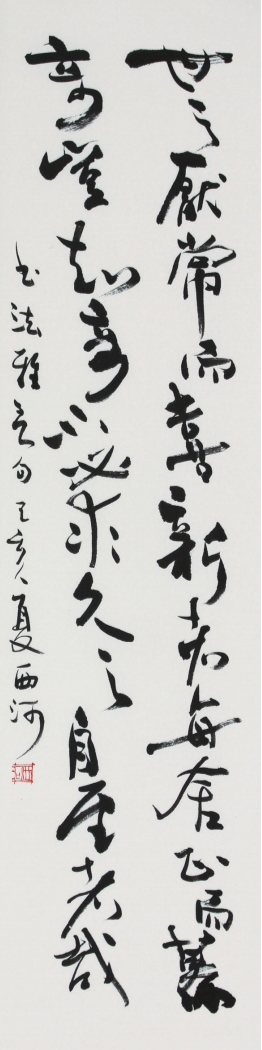 世之厭常而喜新者每舍正而慕
奇豈知奇不必求久之自至者哉
書法雅言句己亥夏西河
西河